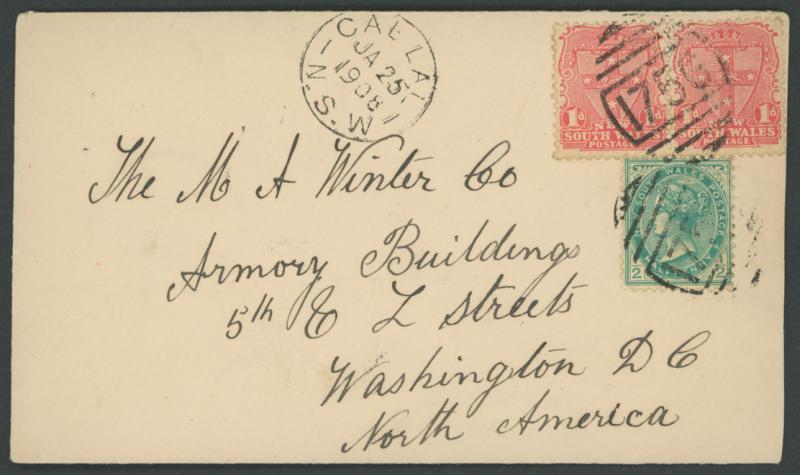 CALLAL
JA 25
1908
N.S.W
1d 1d
NEW
SOUTH WALES SOUTH WALES
POSTAGE POSTAGE
SOUTH WALES POSTAGE
The M A Winter Co
Armory Building
5th & L Streets
Washington D C
North America